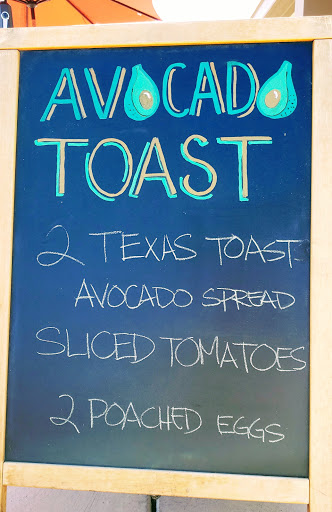 AVOCADO
TOAST
2 TEXAS TOAST
AVOCADO SPREAD
SLICED TOMATOES
2 POACHED EGGS